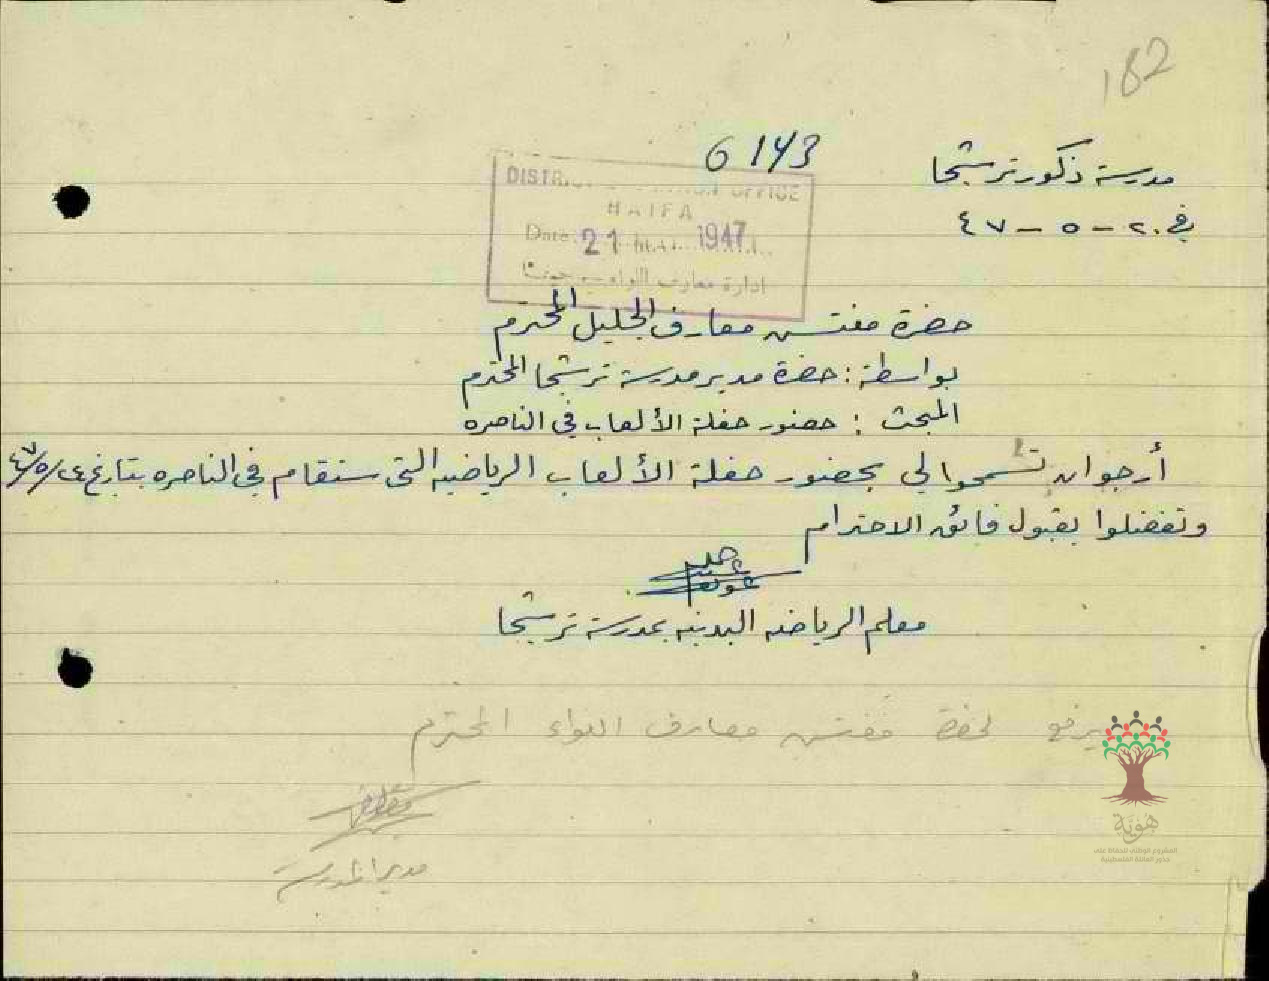 182
6143
مدرسة ذكور ترشيحا
في ٢٠ - ٥ - ٤٧
DISTRICT EDUCATION OFFICE
HAIFA
Date 21 MAY 1947
ادارة معارف اللواء حيفا
حضرة مفتش معارف الجليل المحترم
بواسطة : حضرة مدير مدرسة ترشيحا المحترم
المبحث : حضور حفلة الألعاب في الناصره
أرجو ان تسمحوا لي بحضور حفلة الألعاب الرياضيه التي ستقام في الناصره بتاريخ ٢٤/٥/٤٧
وتفضلوا بقبول فائق الاحترام
معلم الرياضه البدنيه بمدرسة ترشيحا
يرفع لحضرة مفتش معارف اللواء المحترم
مدير المدرسة
هوية
المشروع الوطني للحفاظ على
جذور العائلة الفلسطينية